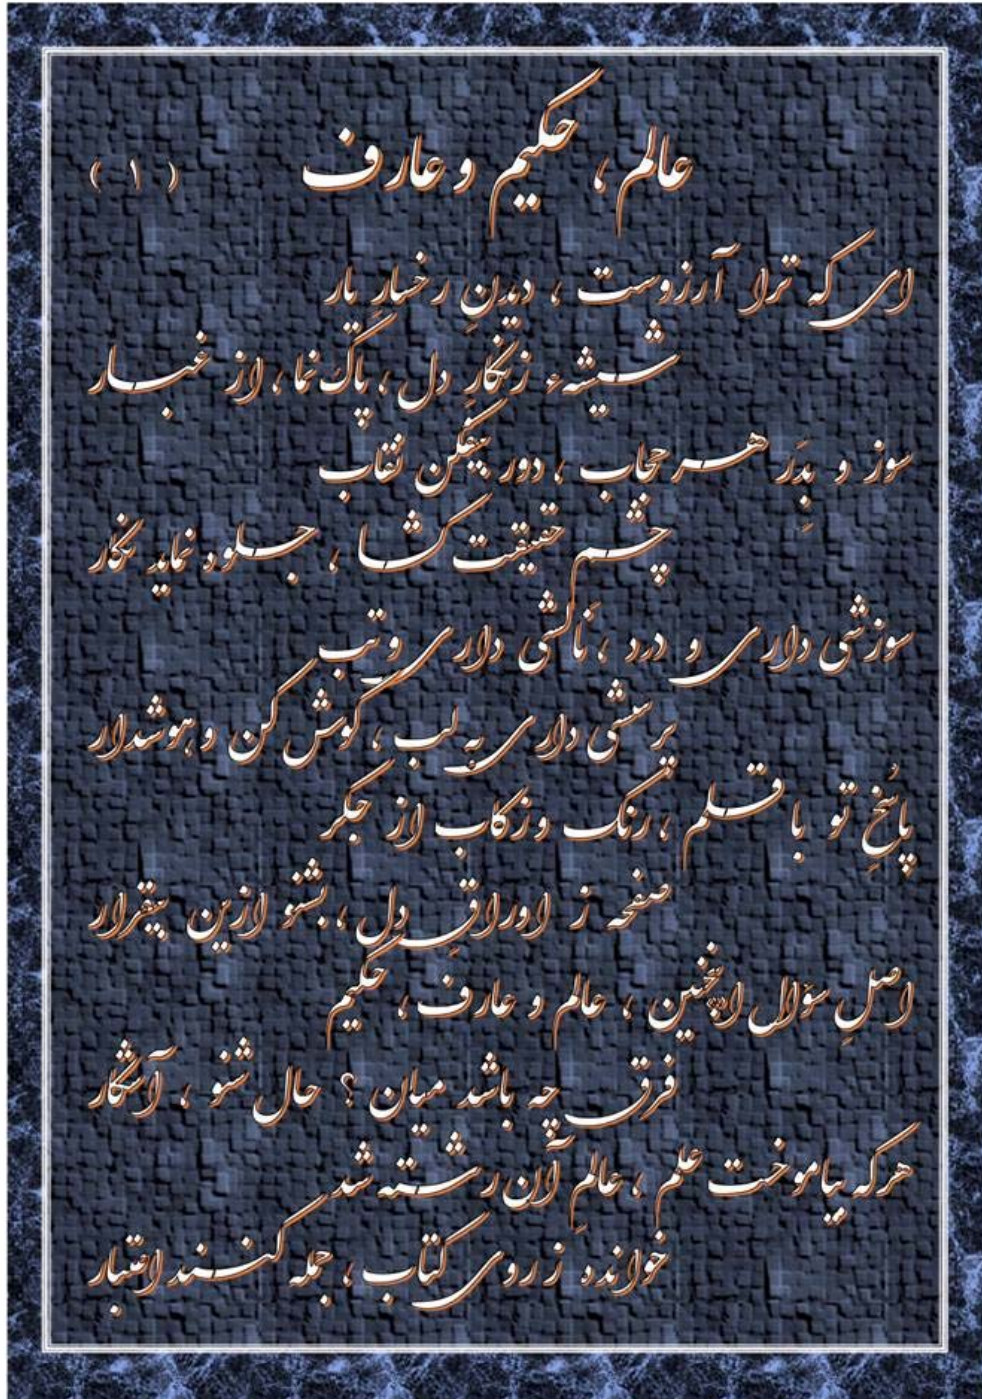 عالم ، حکیم و عارف ( ۱ )
ای که ترا آرزوست ، دیدنِ رخسارِ یار
شیشهء زنگارِ دل ، پاک نما ، از غبار
سوز و بِدَر هر حجاب ، دور بیفکن نقاب
چشم حقیقت گشا ، جلوه نماید نگار
سوزشی داری و درد ، نالشی داری و تب
پرسشی داری به لب ، گوش کن و هوشدار
پاسُخِ تو با قلم ، رنگ و زکاب از جگر
صفحه ز اوراقِ دل ، بشنو ازین بیقرار
اصلِ سؤال اینچنین ، عالم و عارف ، حکیم
فرق چه باشد میان ؟ حال شنو ، آشکار
هرکه بیاموخت علم ، عالمِ آن رشته شد
خوانده ز روی کتاب ، جمله کنند اعتبار